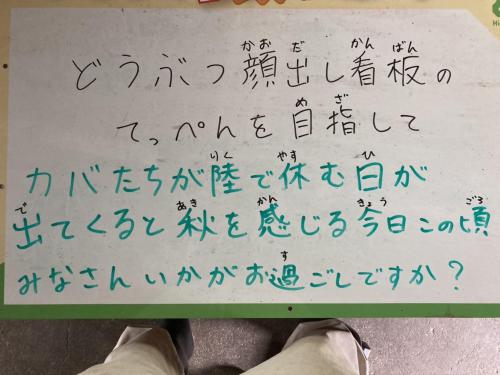 どうぶつ顔出し看板の
てっぺんを目指して
カバたちが陸で休む日が
出てくると秋を感じる今日この頃
みなさんいかがお過ごしですか？